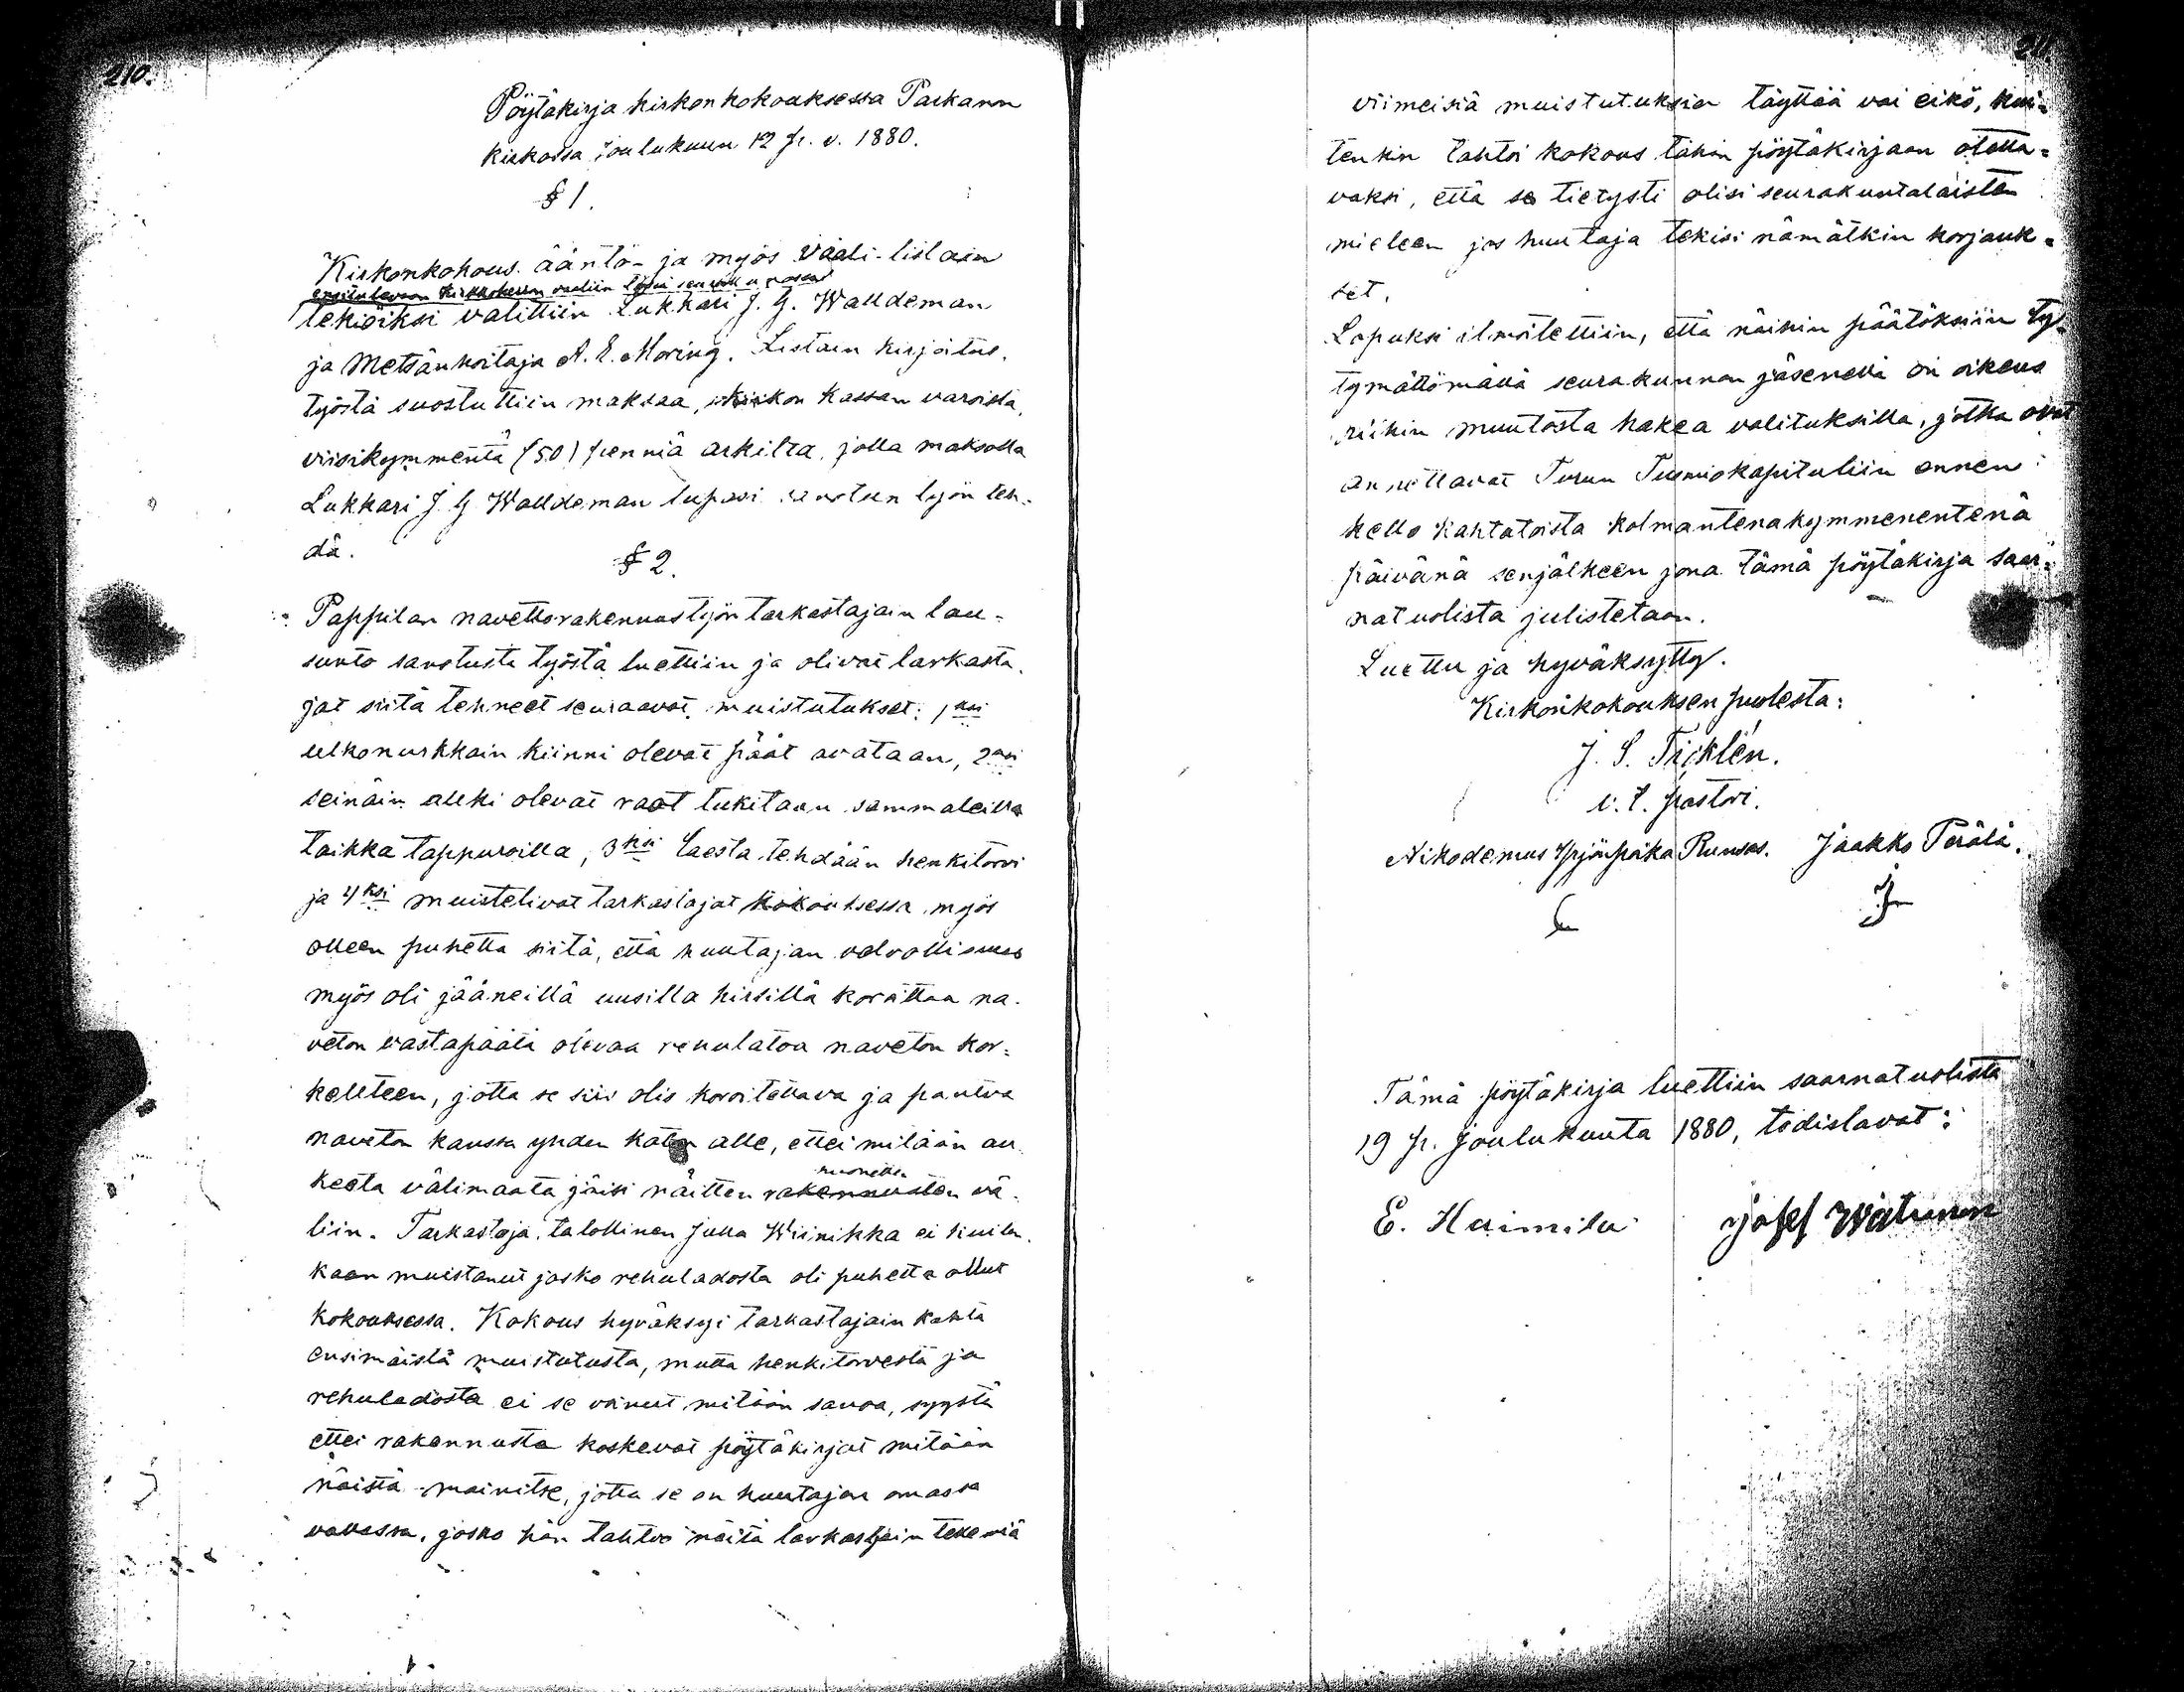 210.
Pöytäkirja kirkonkokouksessa Parkanon
kirkossa joulukuun 12 p. v. 1880.
§ 1.
Kirkonkokous ääntö- ja myös vaali-listain
ensitulevaan kirkkoherran vaaliin tässä seurakunnassa
tekiöiksi valittiin Lukkari J. G. Walldeman
ja Metsänhoitaja A. E. Moring. Listain kirjoitus-
työstä suostuttiin maksaa, kirkon kassan varoista,
viisikymmentä (50) penniä arkilta, jolla maksolla
Lukkari J G Walldeman lupasi sanotun työn teh-
dä.
§ 2.
Pappilan navettorakennustyön tarkastajain lau-
sunto sanotusta työstä luettiin ja olivat tarkasta-
jat siitä tehneet seuraavat muistutukset: 1ksi
ulkonurkkain kiinni olevat päät avataan, 2ksi
seinäin alki olevat raot tukitaan sammaleilla
taikka tappuroilla, 3ksi laesta tehdään henkitorvi
ja 4ksi muistelivat tarkastajat kokouksessa myös
olleen puhetta siitä, että huutajan velvollisuus
myös oli jääneillä uusilla hirsillä korottaa na-
veton vastapäätä olevaa rehulatoa naveton kor-
keuteen, jotta se siis olis koroitettava ja pantva
naveton kanssa yhden katon alle, ettei mitään au-
keeta välimaata jäisi näitten rakennusten vä-
huonetten
liin. Tarkastaja, talollinen Juha Wiinikka ei kuiten-
kaan muistanut josko rehuladosta oli puhetta ollut
kokouksessa. Kokous hyväksyi tarkastajain kahta
ensimäistä muistutusta, mutta henkitorvesta ja
rehuladosta ei se voinut mitään sanoa, syystä
ettei rakennusta koskevat pöytäkirjat mitään
näistä mainitse, jotta se on huutajan omassa
vallassa, josko hän tahtoo näitä tarkastajain tekemiä
211.
viimeisiä muistutuksia täyttää vai eikö, kui-
tenkin tahtoi kokous tähän pöytäkirjaan otetta-
vaksi, että se tietysti olisi seurakuntalaisten
mieleen jos huutaja tekisi nämätkin korjauk-
set.
Lopuksi ilmoitettiin, että näihin päätöksiin ty-
tymättömällä seurakunnan jäsenellä on oikeus
niihin muutosta hakea valituksilla, jotka ovat
annettavat Turun Tuomiokapituliin ennen
kello kahtatoista kolmantenakymmenentenä
päivänä senjälkeen jona tämä pöytäkirja saar-
natuolista julistetaan.
Luettu ja hyväksytty.
Kirkonkokouksen puolesta:
J. S. Ticklén.
v. t. pastori.
Nikodemus Yrjönpoika Runsas. Jaakko Perälä.
Tämä pöytäkirja luettiin saarnatuolista
19 p. joulukuuta 1880, todistavat:
E. Haimila Josef Wätunen